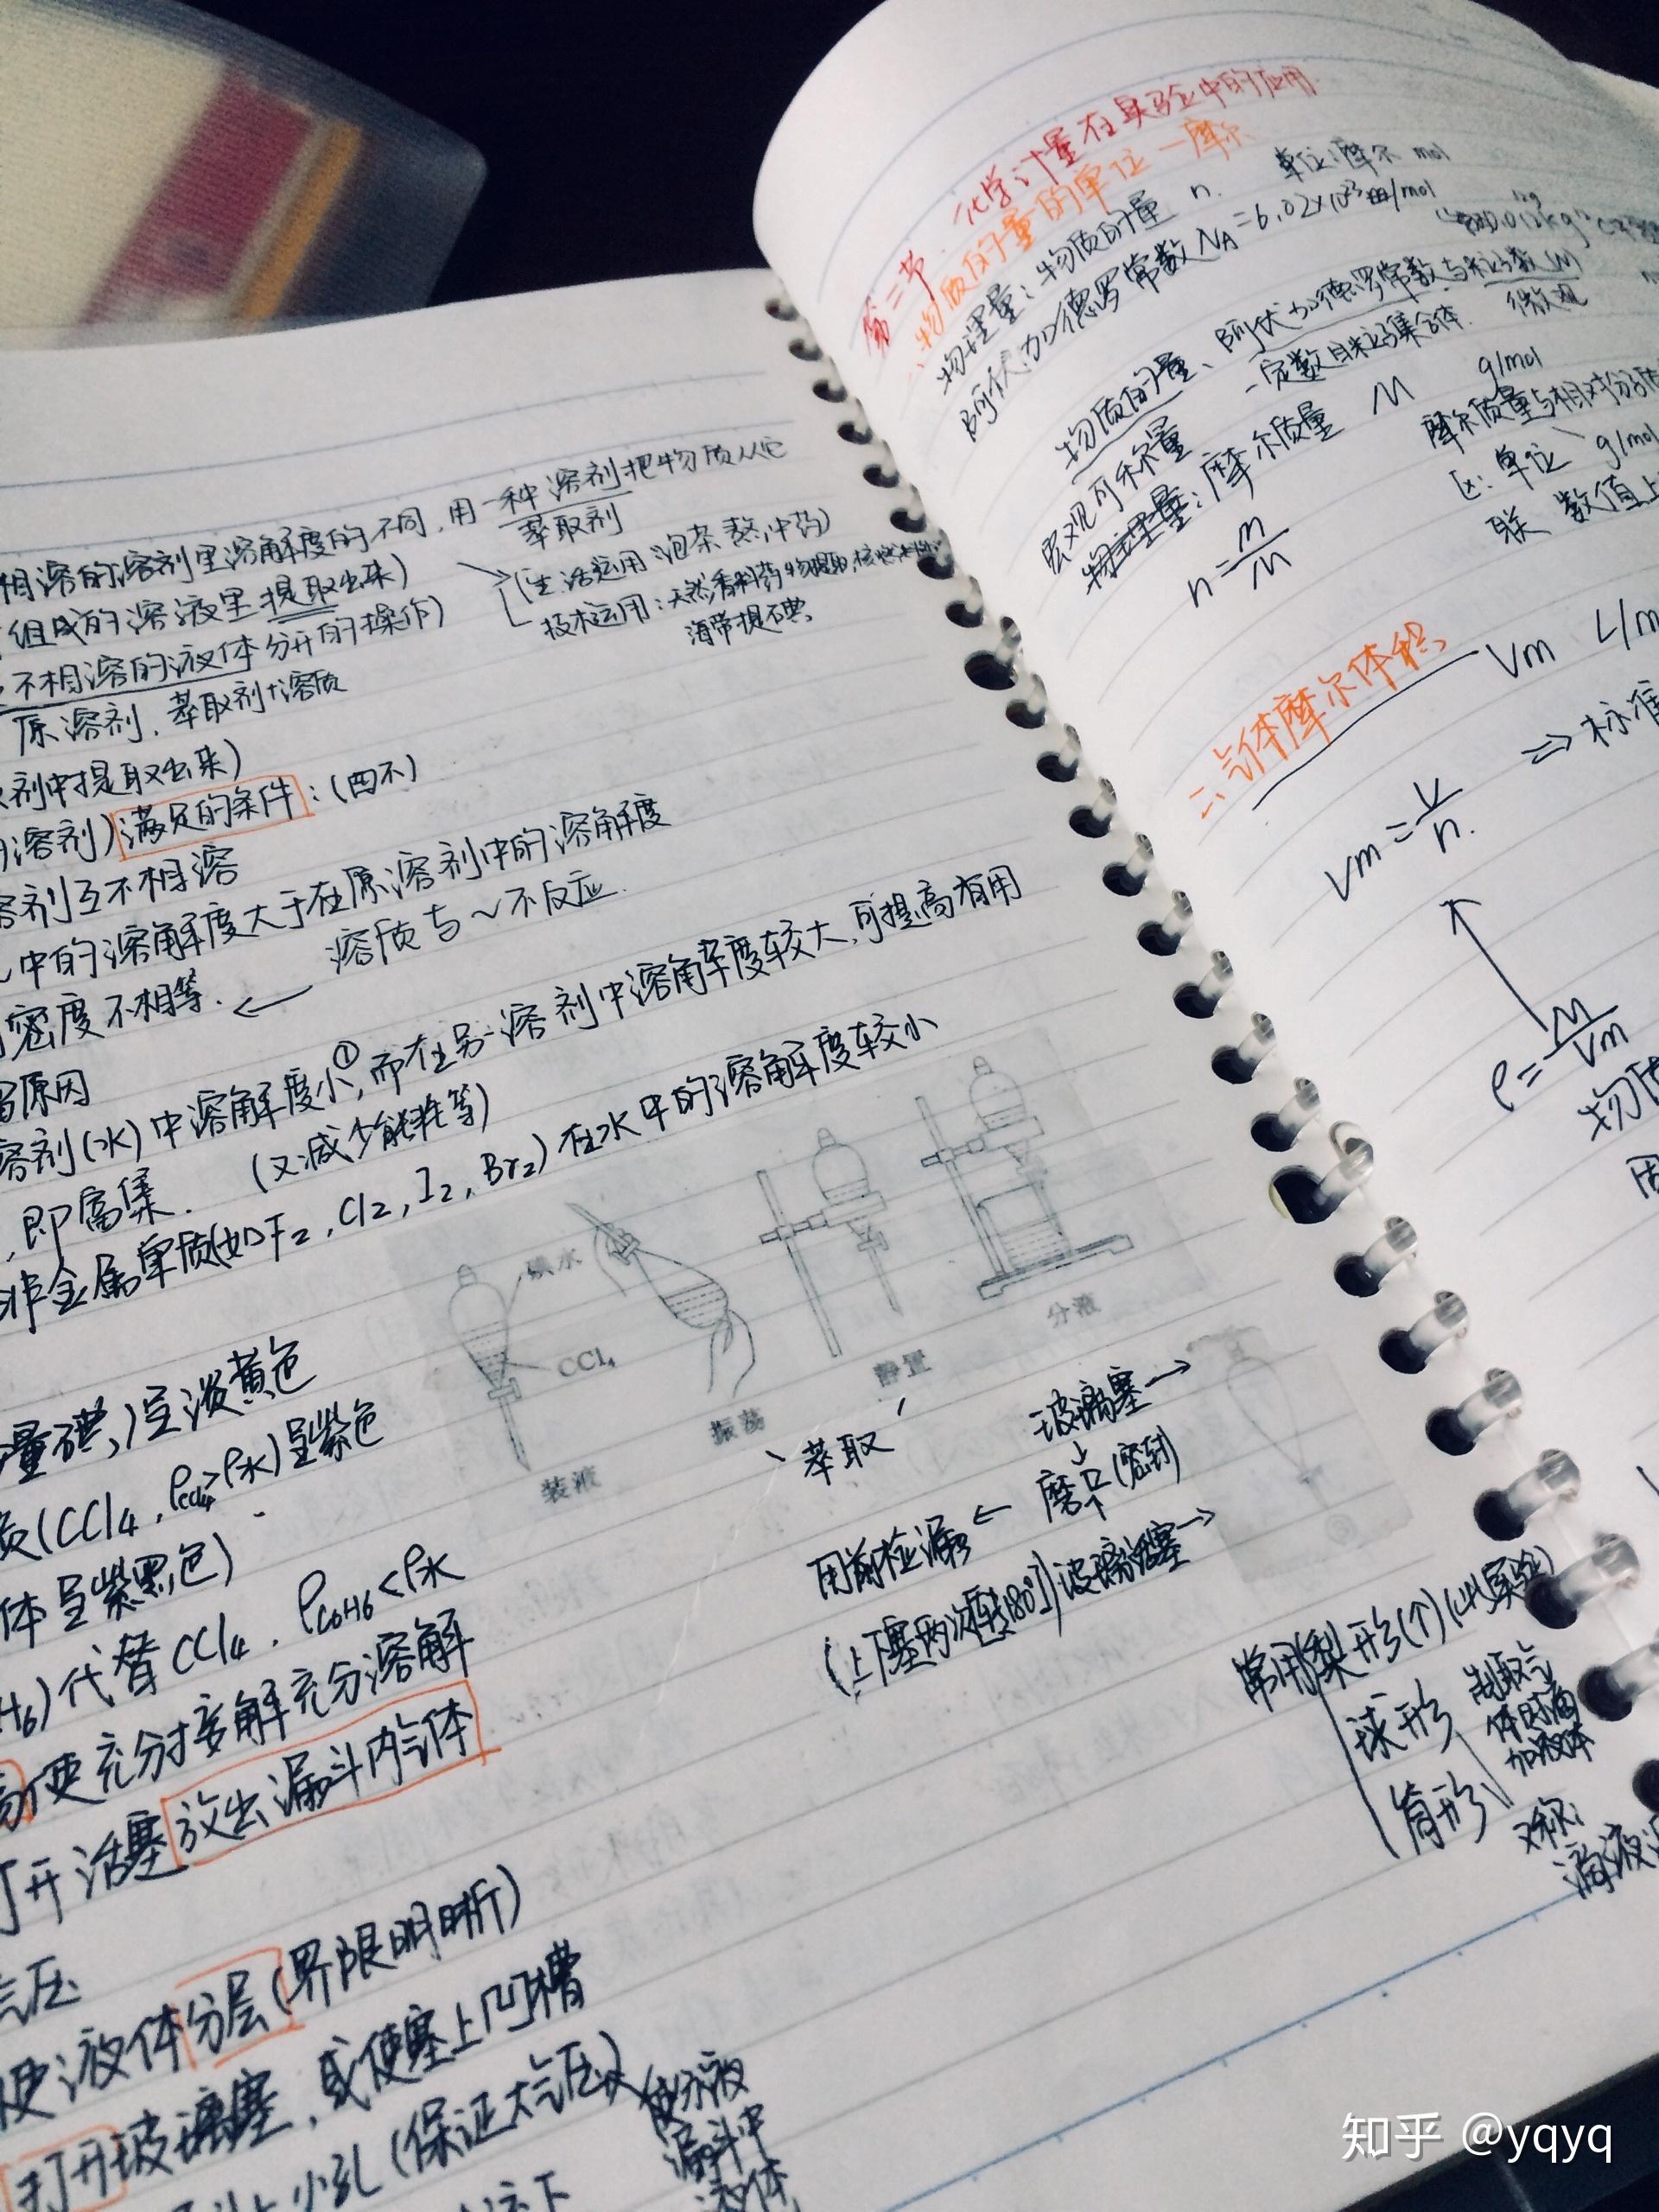 相溶的溶剂里溶解度的不同，用一种溶剂把物质从它
萃取剂
组成的溶液里提取出来)
(生活运用:泡茶熬冲药)
技术运用:天然香料药物提取,核燃
海带提碘.
不相溶的液体分开的操作)
原溶剂，萃取剂+溶质
剂中提取出来)
溶剂)满足的条件:(四不)
溶剂互不相溶
中的溶解度大于在原溶剂中的溶解度
溶质与~不反应.
密度不相等.
原因
溶剂(水)中溶解度小①,而在另一溶剂中溶解度较大,可提高有用
,即富集. (又减少能耗等)
非金属单质(如F2,Cl2,I2,Br2)在水中的溶解度较小
碘水
CCl4
装液
振荡
静置
分液
量碘,)呈淡黄色
(CCl4,ρCCl4>ρ水)呈紫色
体呈紫黑色)
H6)代替CCl4. ρC6H6<ρ水
使充分接解充分溶解
打开活塞放出漏斗内气体
气压
使液体分层(界限明晰)
打开玻璃塞,或使塞上凹槽
小孔(保证大气压)
使分液
漏斗中
液体
萃取
玻璃塞→
磨口(密封)
用前检漏←
(上下塞两次倒转180°)玻璃活塞→
常用梨形(个)(以实验)
球形
筒形
制取气
体时滴
加液体
又称:
滴液
第二节.化学计量在实验中的应用.
一.物质的量的单位—摩尔
物理量:物质的量 n. 单位:摩尔 mol
阿伏加德罗常数NA=6.02×10²³ /mol
物质的量、阿伏加德罗常数与粒子数(N)
宏观可称量 一定数目粒子集合体. 微观
物理量:摩尔质量 M g/mol
n=m/M
摩尔质量与相对分子质
区:单位 g/mol
联 数值上
二、气体摩尔体积 Vm L/m
Vm=V/n. ⇒标准
ρ=M/Vm
物质
知乎 @yqyq